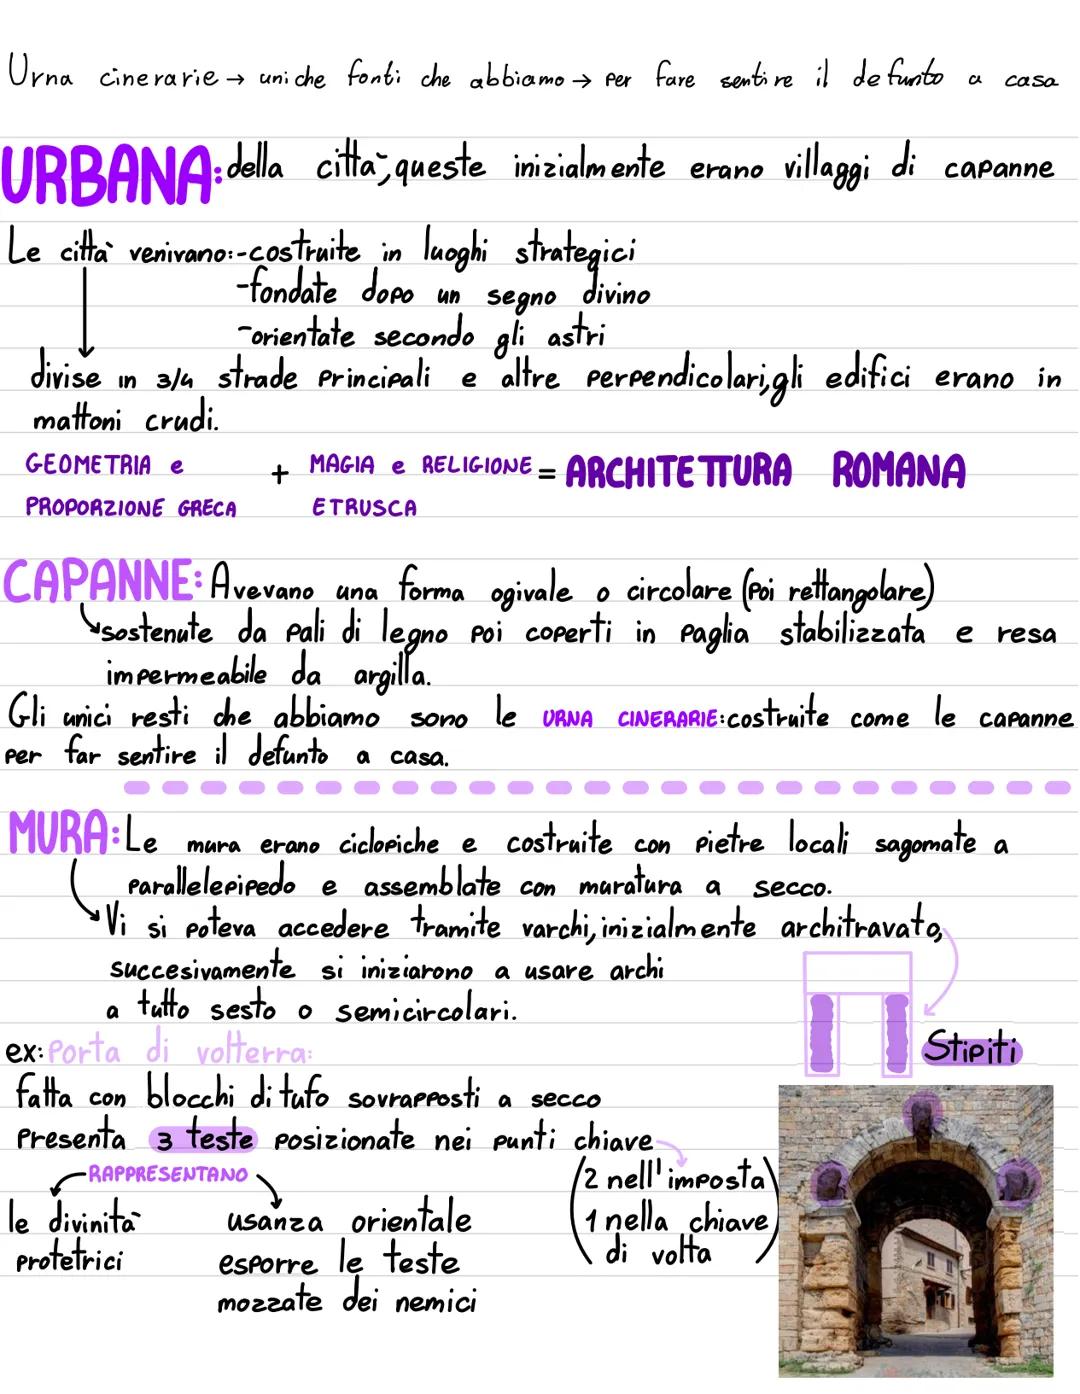 Urna cinerarie → uniche fonti che abbiamo → per fare sentire il defunto a casa
URBANA: della città, queste inizialmente erano villaggi di capanne
Le città venivano: -costruite in luoghi strategici
-fondate dopo un segno divino
-orientate secondo gli astri
divise in 3/4 strade principali e altre perpendicolari, gli edifici erano in
mattoni crudi.
GEOMETRIA e + MAGIA e RELIGIONE = ARCHITETTURA ROMANA
PROPORZIONE GRECA ETRUSCA
CAPANNE: Avevano una forma ogivale o circolare (poi rettangolare)
sostenute da pali di legno poi coperti in paglia stabilizzata e resa
impermeabile da argilla.
Gli unici resti che abbiamo sono le URNA CINERARIE: costruite come le capanne
per far sentire il defunto a casa.
MURA: Le mura erano ciclopiche e costruite con pietre locali sagomate a
parallelepipedo e assemblate con muratura a secco.
Vi si poteva accedere tramite varchi, inizialmente architravato,
succesivamente si iniziarono a usare archi
a tutto sesto o semicircolari.
Stipiti
ex: porta di volterra:
fatta con blocchi di tufo sovrapposti a secco
Presenta 3 teste posizionate nei punti chiave
(2 nell'imposta
1 nella chiave
di volta)
RAPPRESENTANO
le divinità usanza orientale
protetrici esporre le teste
mozzate dei nemici